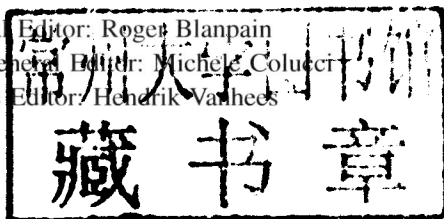 l Editor: Roger Blanpain
eneral Editor: Michele Colucci
Editor: Hendrik Vanhees
常州大学
藏书章